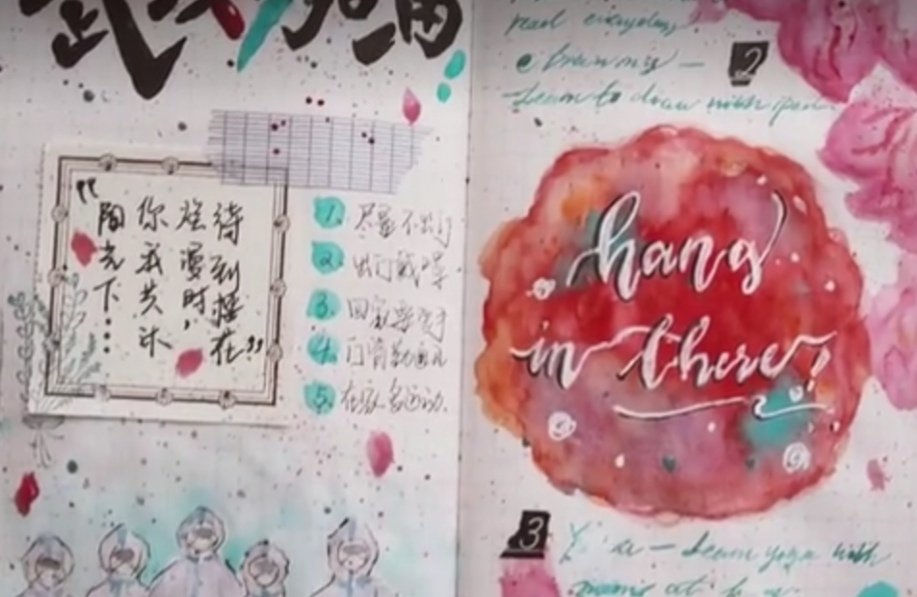 武汉加油
待到
时，
你我共沐
阳光下……
1. 尽量不出门
2. 出门戴口罩
3. 回家要洗手
4. 门窗勤通风
5. 在家多运动.
read everyday!
2
Drawing —
learn to draw with ipad.
hang
in there!
3
Yoga — learn yoga with
at